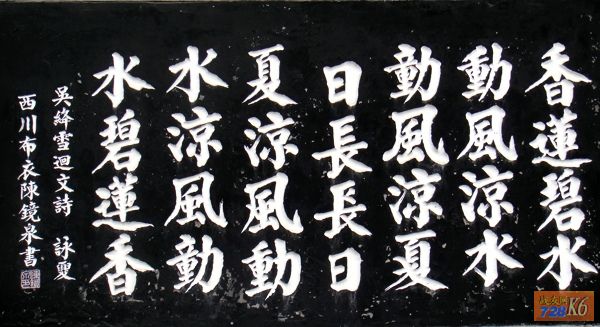 香蓮碧水
動風涼水
動風涼夏
日長長日
夏涼風動
水涼風動
水碧蓮香
吳絳雪迴文詩 詠夏
西川布衣陳鏡泉書
战友网
728K6